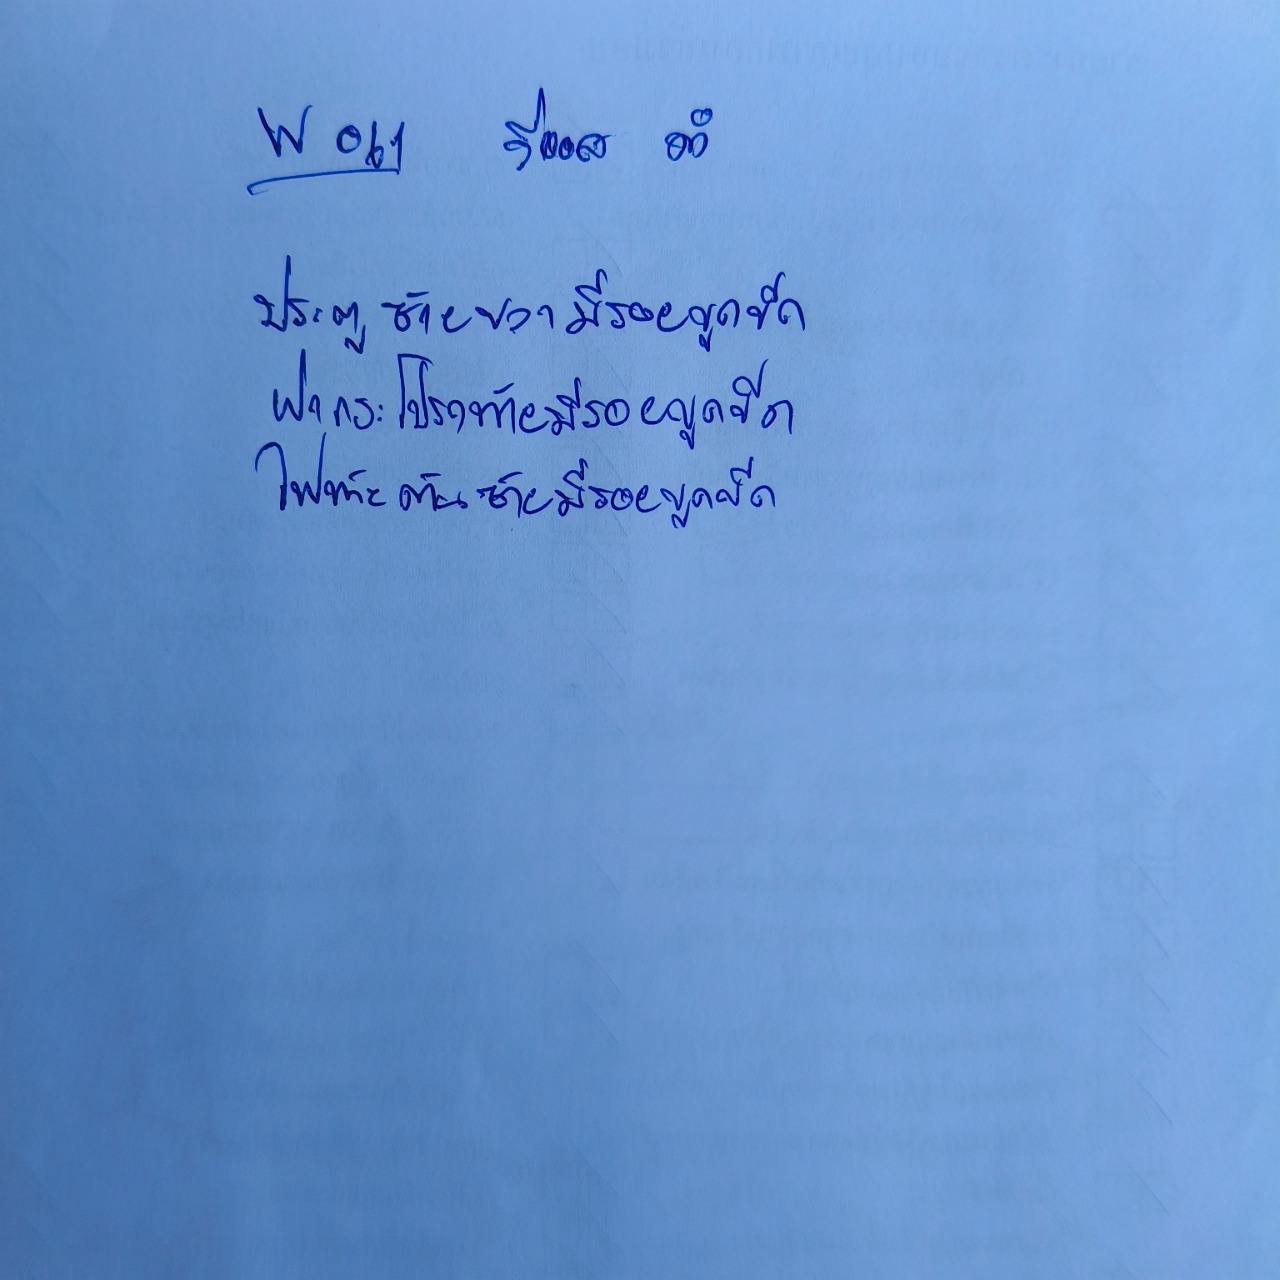 W 061 วีออส ดำ
ประตู ซ้ายขวา มีรอยขูดขีด
ฝากระโปรงท้ายมีรอยขูดขีด
ไฟท้ายด้านซ้ายมีรอยขูดขีด